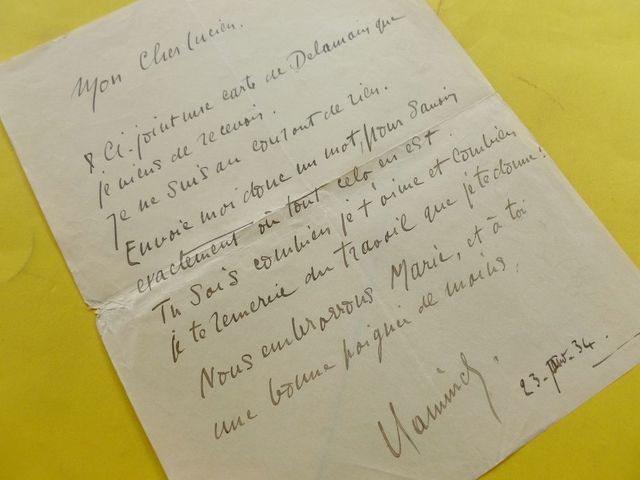 Mon Cher Lucien.
Ci-joint une carte de Delamain que
je viens de recevoir.
Je ne suis au courant de rien.
Envoie moi donc un mot, pour savoir
exactement où tout cela en est.
Tu sais combien je t'aime et combien
je te remercie du travail que je te donne!
Nous embrassons Marie, et à toi
une bonne poignée de mains,
23 - - 34